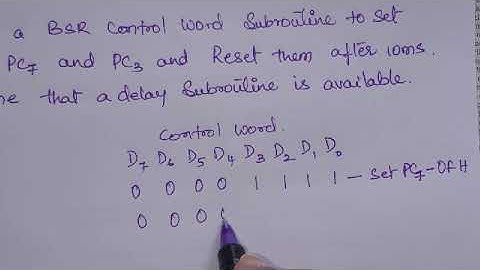 a BSR Control Word Subroutine to Set
PC7 and PC3 and Reset them after 10ms.
that a delay Subroutine is available.
Control Word.
D7 D6 D5 D4 D3 D2 D1 D0
0 0 0 0 1 1 1 1 — Set PC7 - 0FH
0 0 0